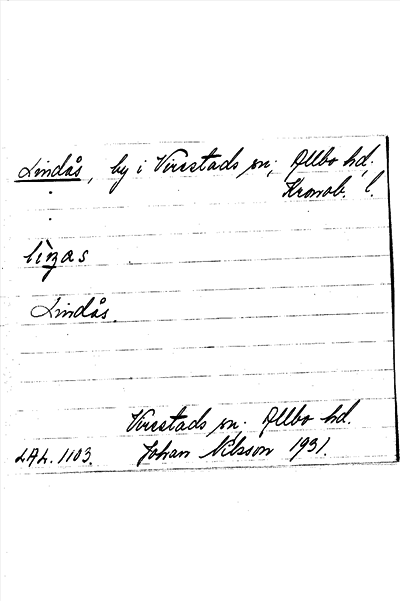 Lindås, by i Virestads sn; Allbo hd.
Kronob. l.
Lindås.
Virestads sn. Allbo hd.
LAL. 1103. Johan Nilsson 1931.